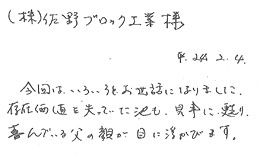 (株)佐野ブロック工業様
H.24.2.4.
今回は、いろいろとお世話になりました。
存在価値を失っていた池も、見事に甦り、
喜んでいる父の顔が目に浮かびます。